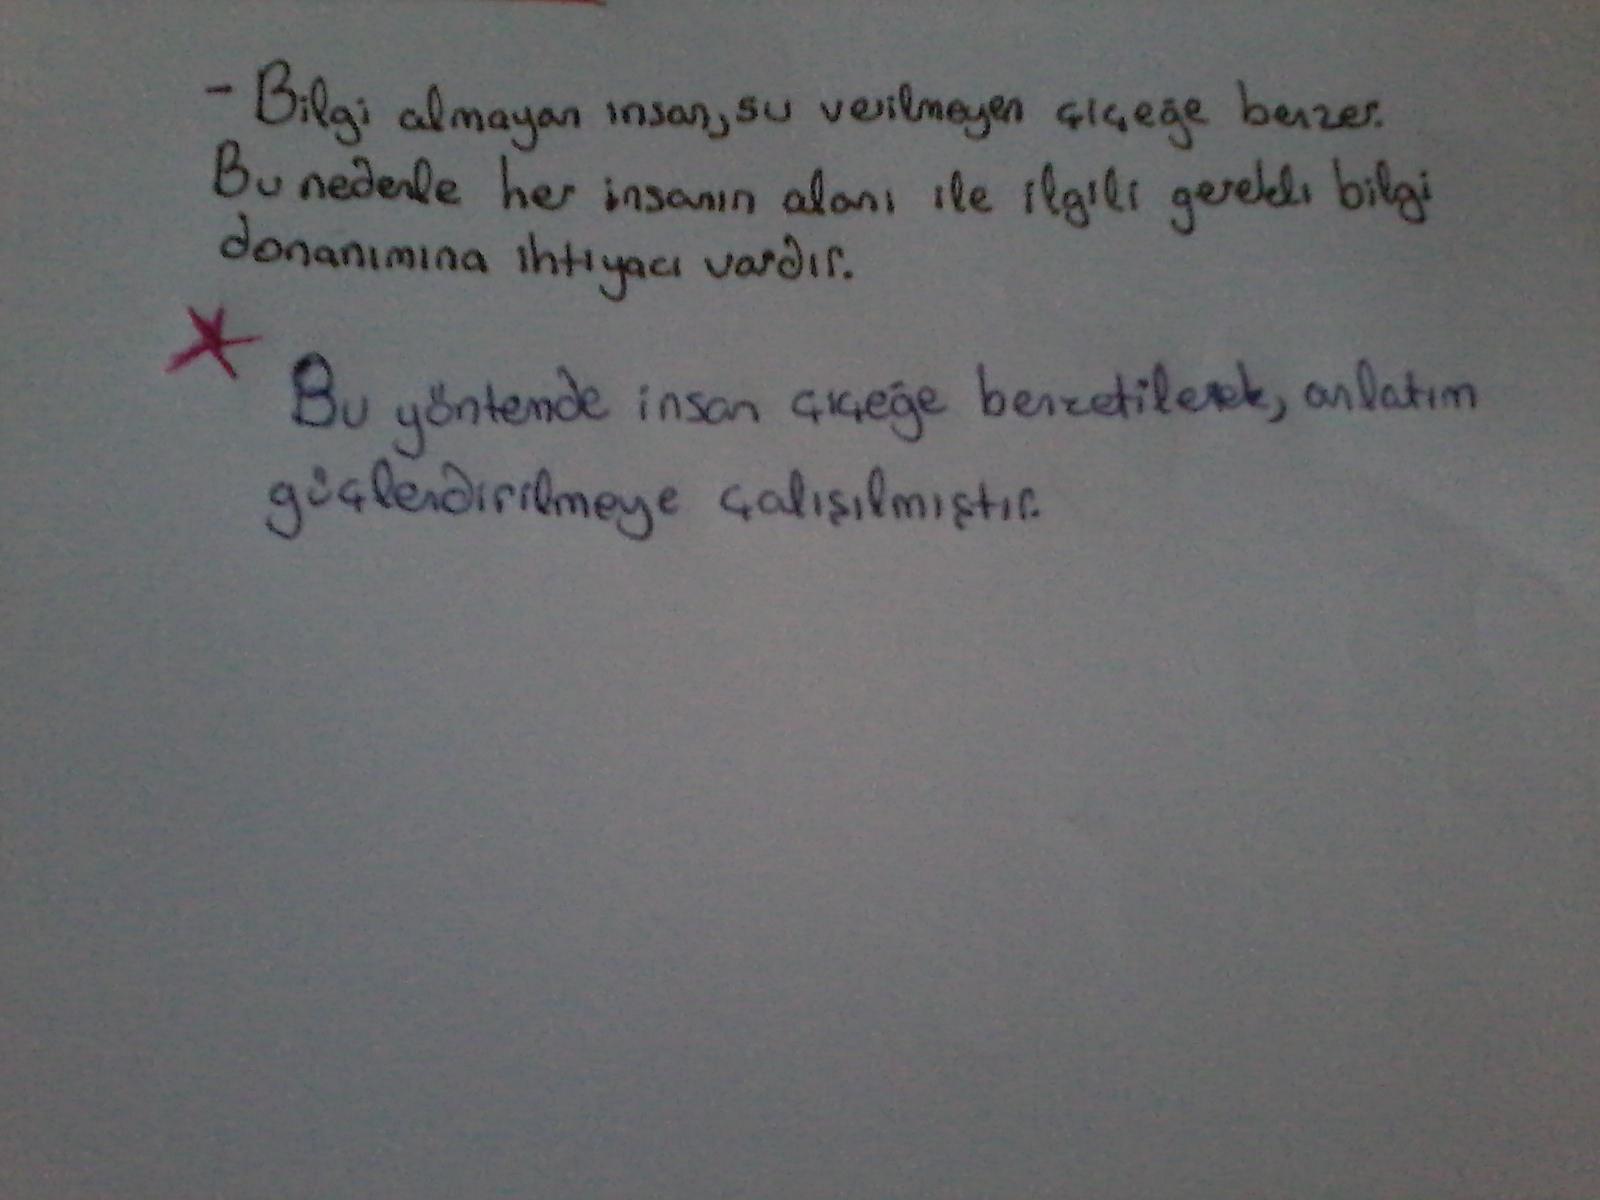 - Bilgi almayan insan, su verilmeyen çiçeğe benzer.
Bu nedenle her insanın alanı ile ilgili gerekli bilgi
donanımına ihtiyacı vardır.
Bu yöntemde insan çiçeğe benzetilerek, anlatım
güçlendirilmeye çalışılmıştır.